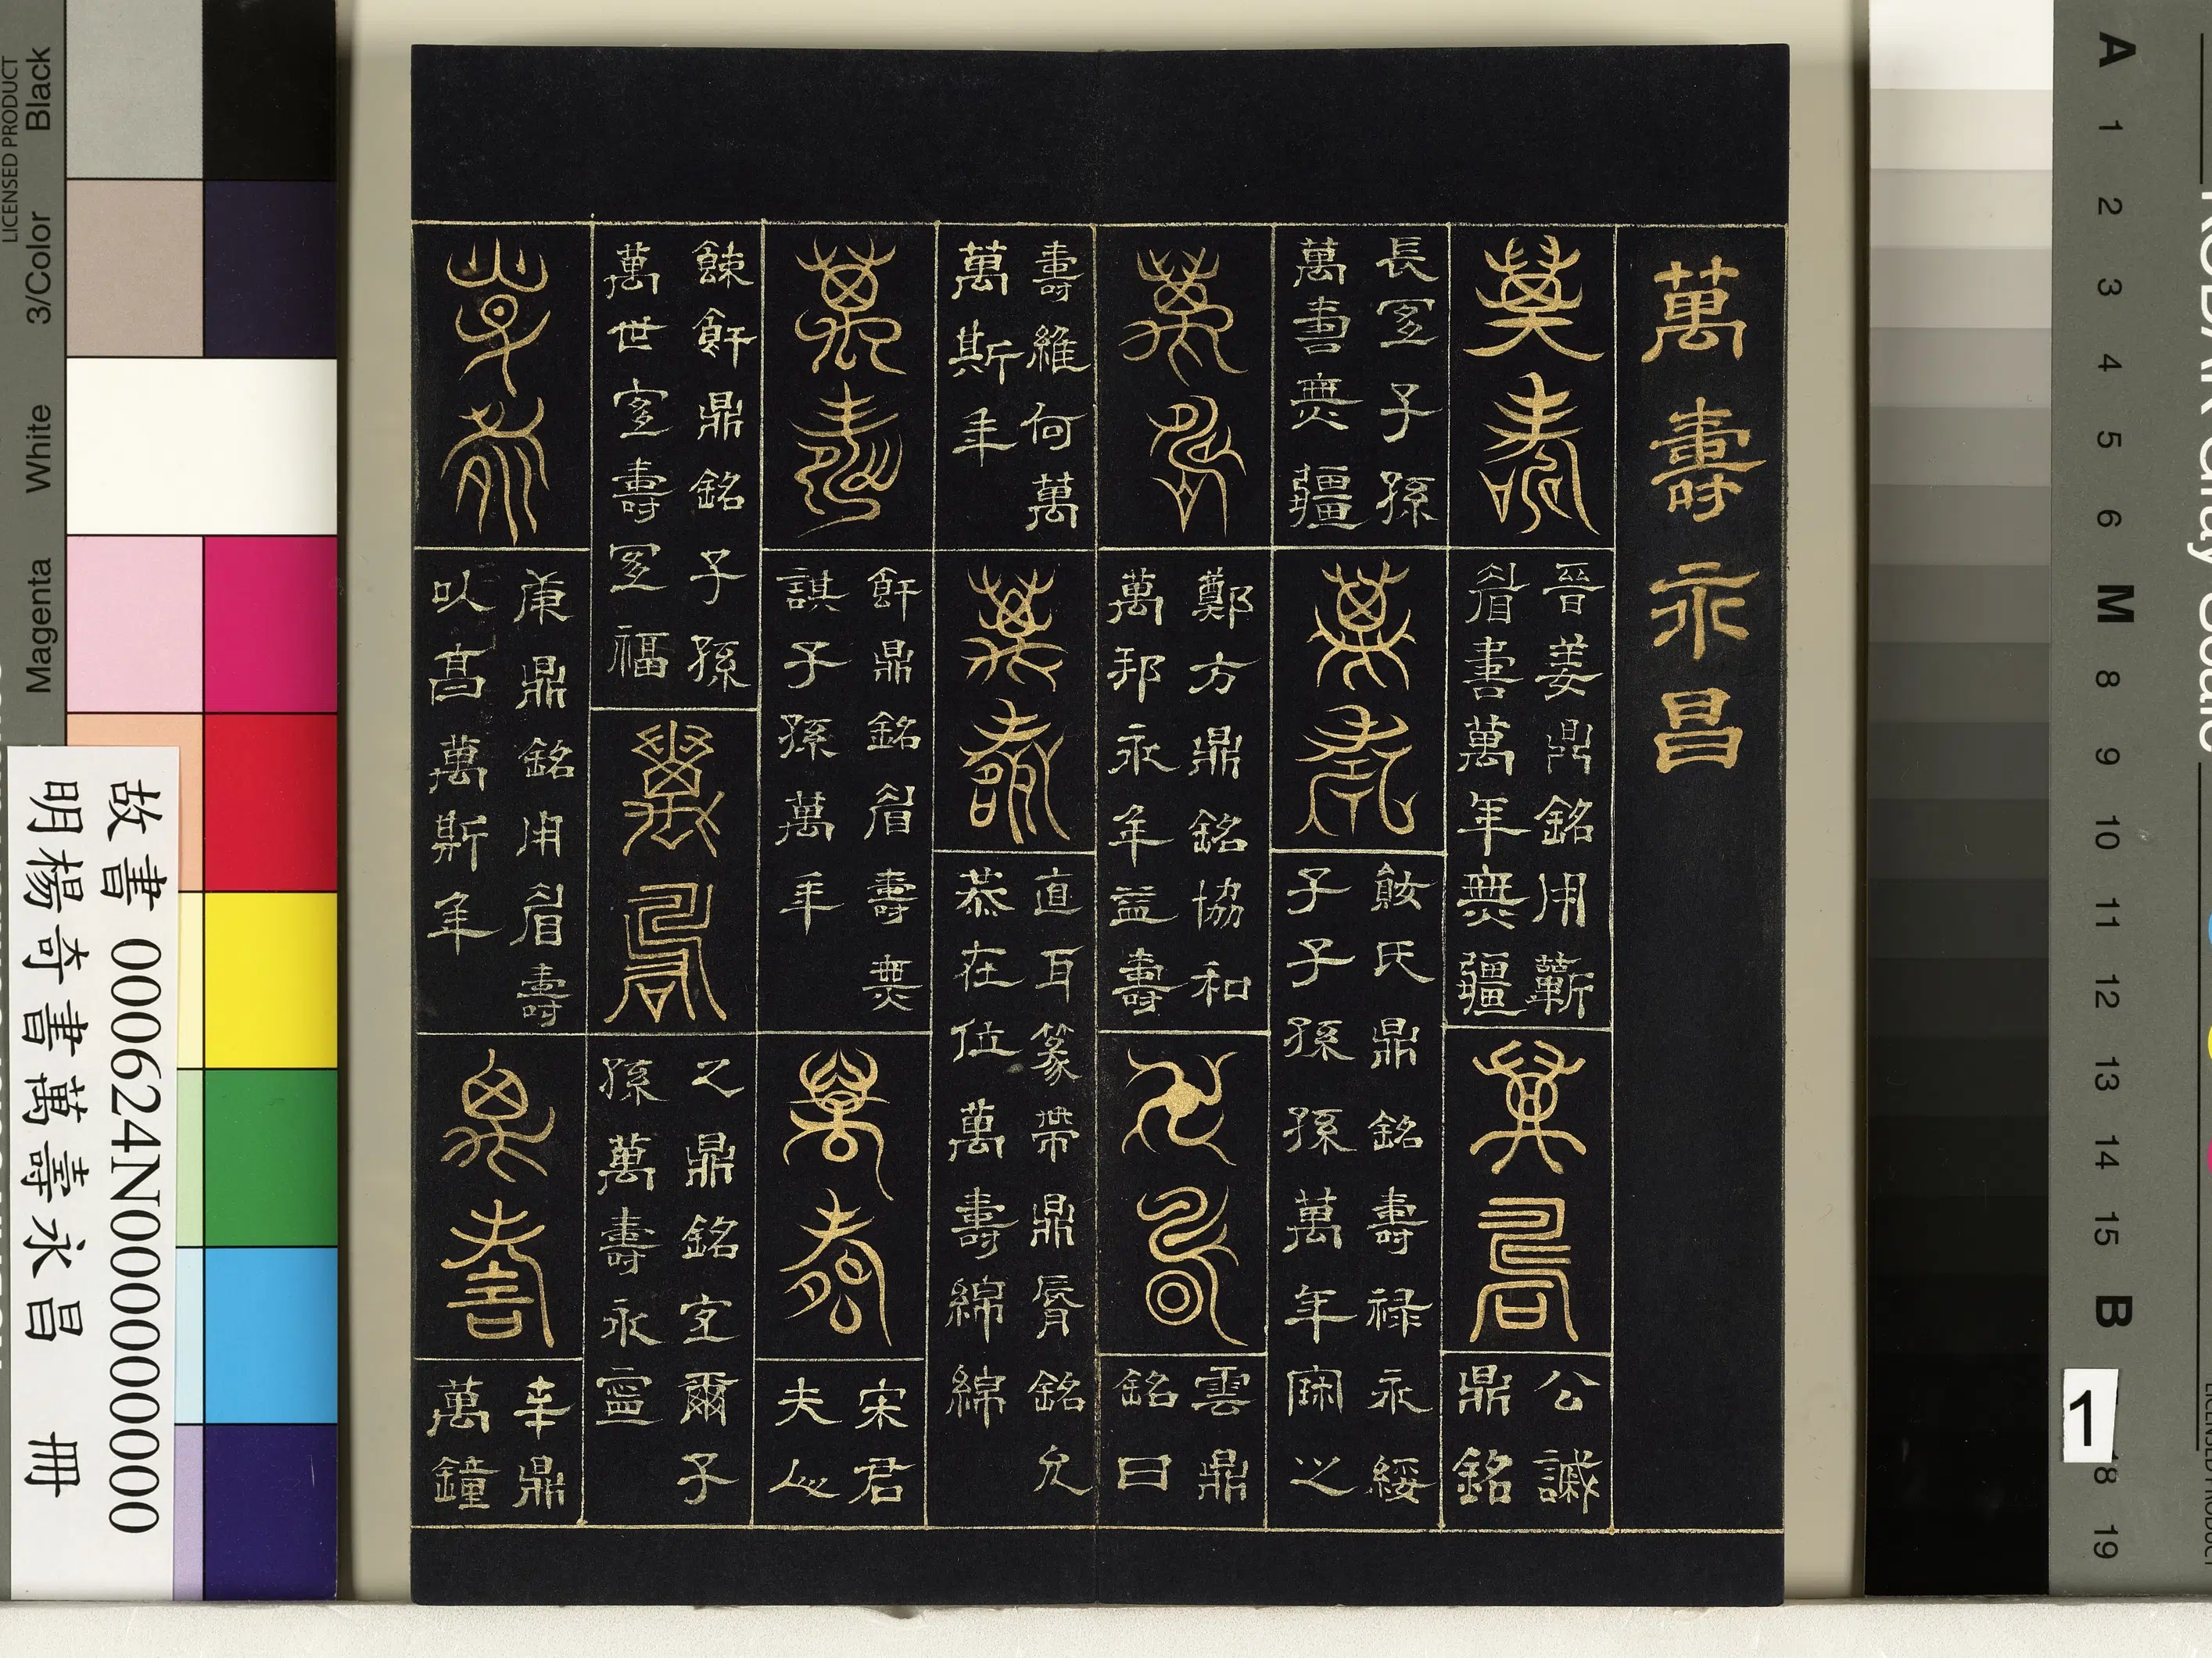 萬壽永昌
萬壽
晉姜鼎銘用蘄
眉壽萬年無疆
萬壽
公諴
鼎銘
長寍子孫
萬壽無疆
萬壽
氏鼎銘壽祿永綏
子子孫孫萬年之
萬壽
鄭方鼎銘協和
萬邦永年益壽
萬壽
雲鼎
銘曰
壽維何萬
萬斯年
萬壽
直耳篆帶鼎銘允
恭在位萬壽綿綿
萬壽
鼎銘眉壽無
諆子孫萬年
萬壽
宋君
夫人
餗鼎銘子孫
萬世室壽寍福
萬壽
之鼎銘室爾子
孫萬壽永寧
萬壽
庚鼎銘用眉壽
以高萬斯年
萬壽
辛鼎
萬鐘
故書 000624N000000000
明楊奇書萬壽永昌 冊
LICENSED PRODUCT
Black
3/Color
White
Magenta
A 1 2 3 4 5 6 M 8 9 10 11 12 13 14 15 B 18 19
1